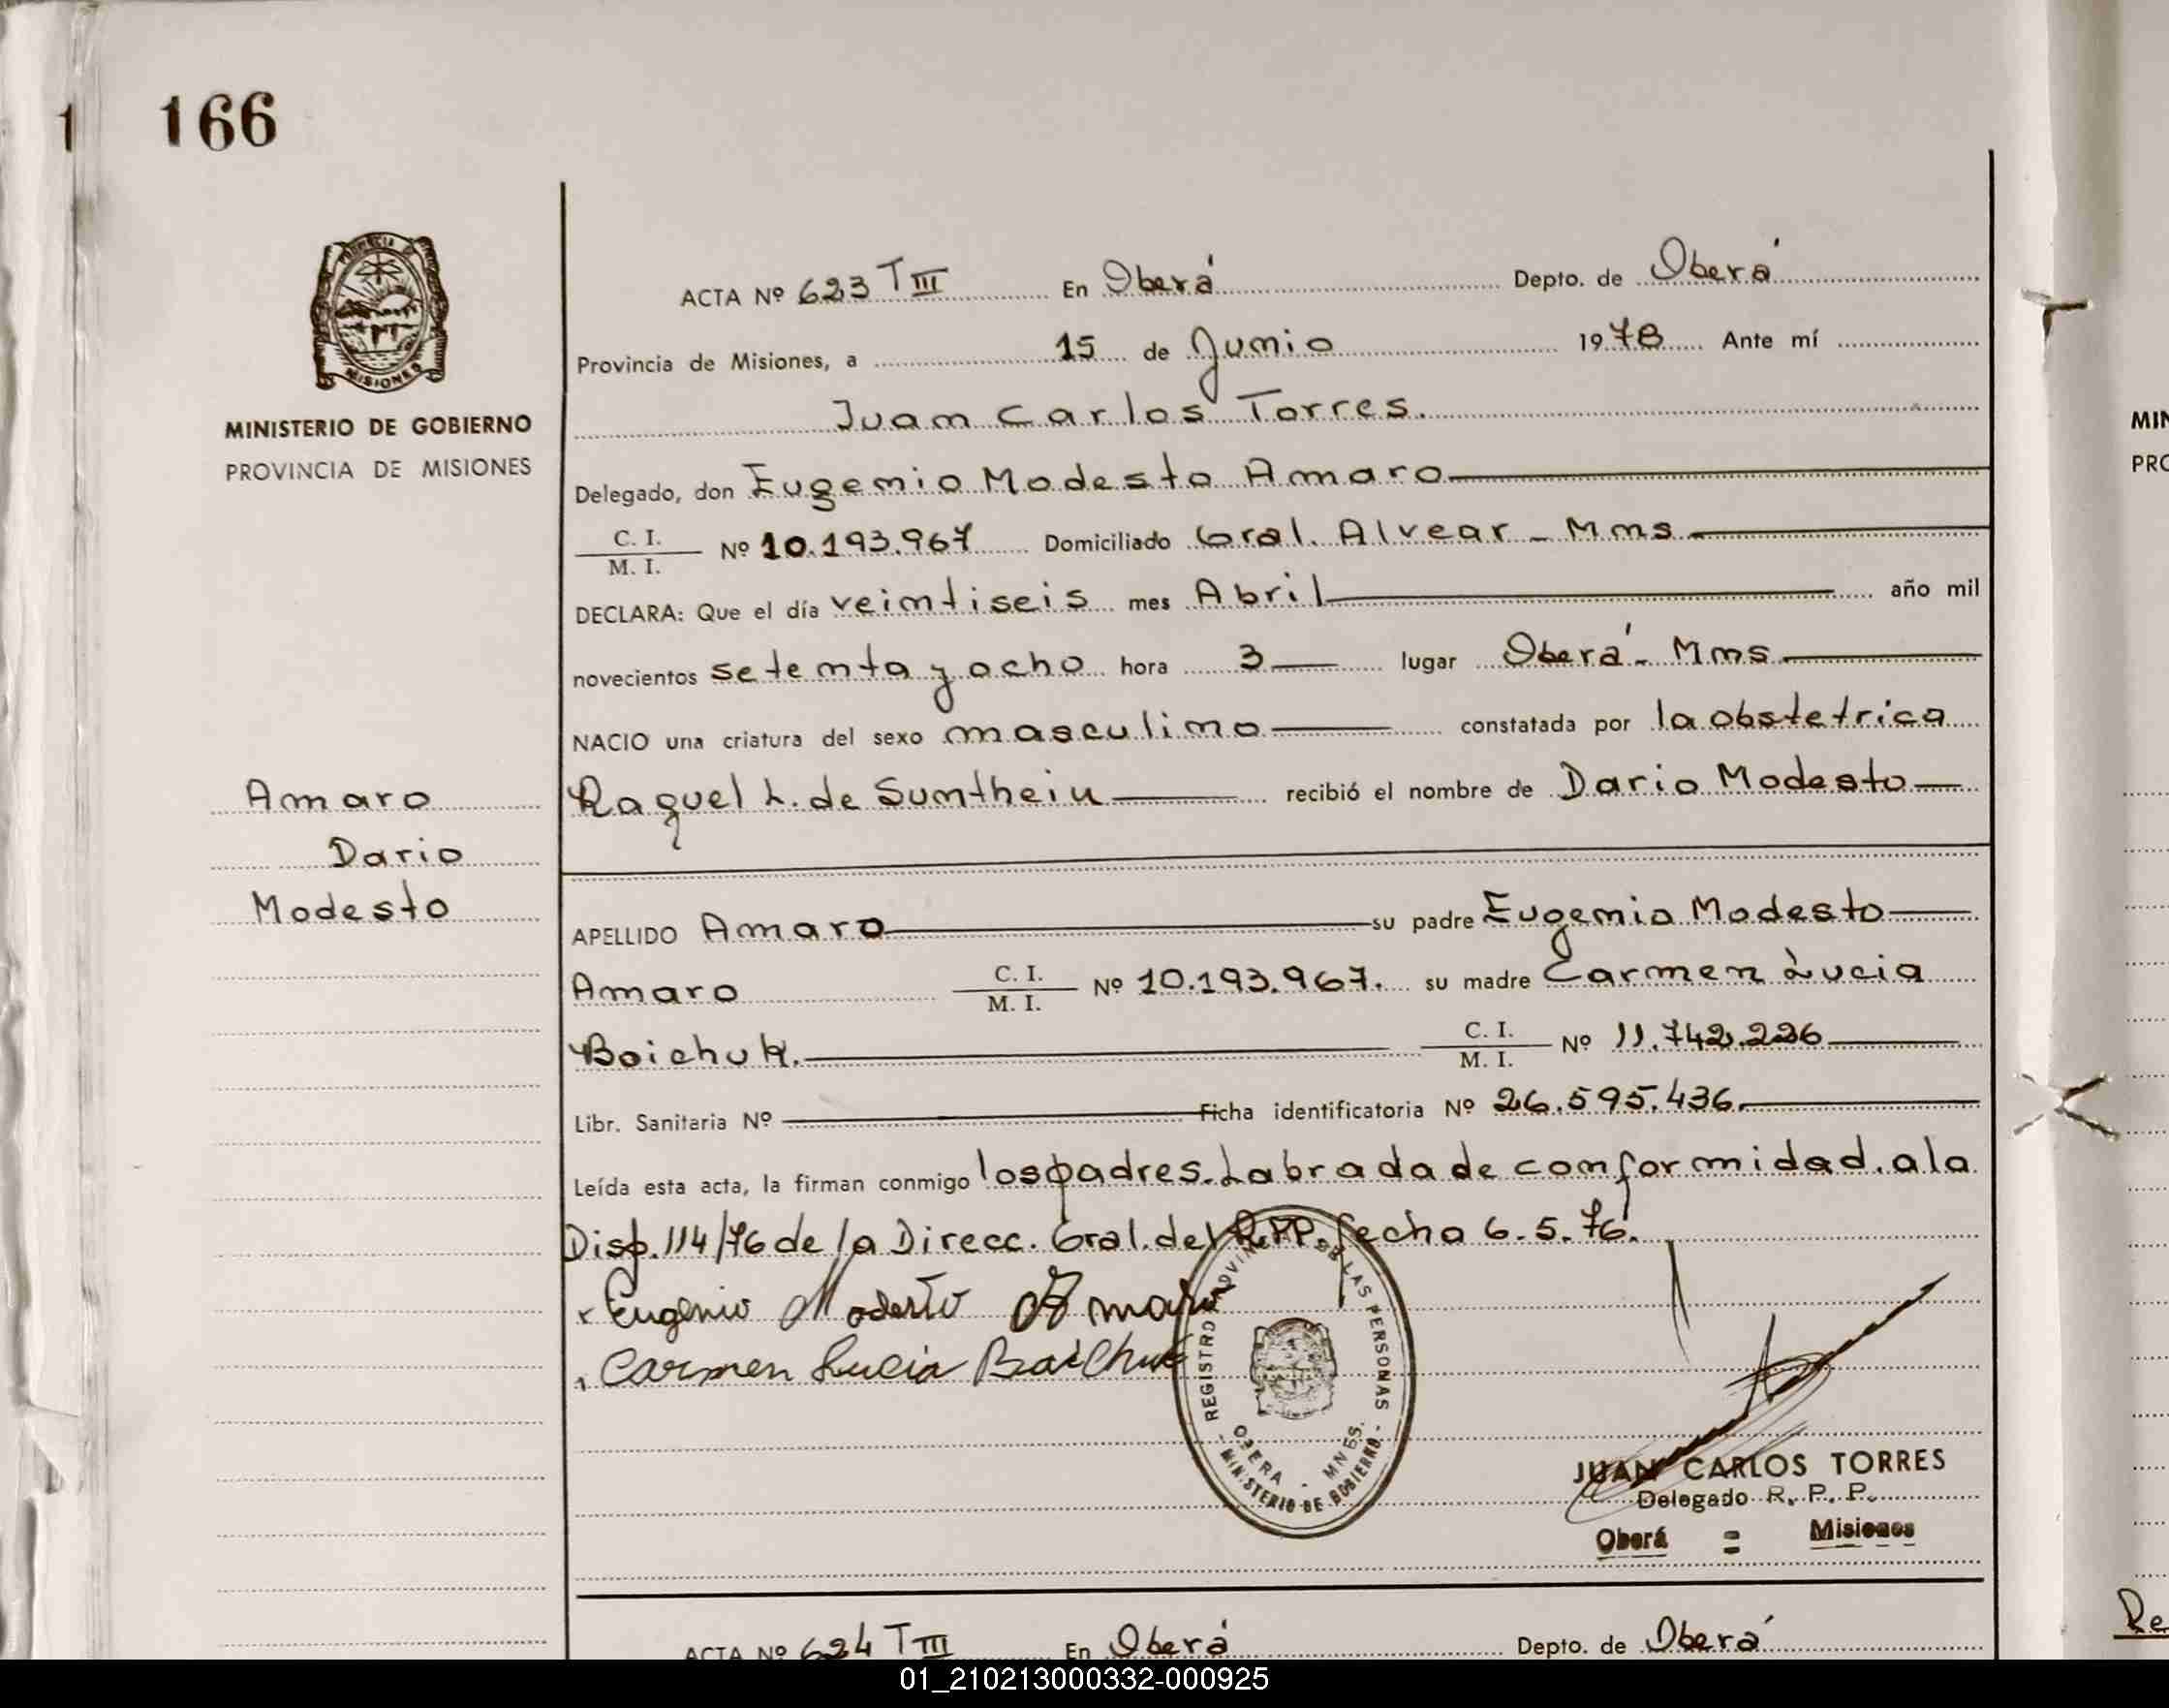 1 166
PROVINCIA DE
MISIONES
MINISTERIO DE GOBIERNO
PROVINCIA DE MISIONES
ACTA Nº 623 T III En Oberá Depto. de Oberá
Provincia de Misiones, a 15 de Junio 1978 Ante mí
Juan Carlos Torres.
Delegado, don Eugenio Modesto Amaro
C. I.
M. I. Nº 10.193.967 Domiciliado Gral. Alvear - Mnes
DECLARA: Que el día veintiseis mes Abril año mil
novecientos setenta y ocho hora 3 lugar Oberá - Mnes
NACIO una criatura del sexo masculino constatada por la obstetrica
Raquel L. de Sunthein recibió el nombre de Dario Modesto
Amaro
Dario
Modesto
APELLIDO Amaro su padre Eugenio Modesto
Amaro C. I.
M. I. Nº 10.193.967. su madre Carmen Lucia
Boichuk. C. I.
M. I. Nº 11.742.226
Libr. Sanitaria Nº Ficha identificatoria Nº 26.595.436.
Leída esta acta, la firman conmigo los padres. Labrada de conformidad. a la
Disp. 114/76 de la Direcc. Gral. del R.P.P. fecha 6.5.76.
Eugenio Modesto Amaro
Carmen Lucia Boichuk
REGISTRO PROVINCIAL DE LAS PERSONAS
OBERA - MNES.
- MINISTERIO DE GOBIERNO -
JUAN CARLOS TORRES
Delegado R. P. P.
Oberá = Misiones
ACTA Nº 624 T III En Oberá Depto. de Oberá
MIN
PRO
Re
01_210213000332-000925